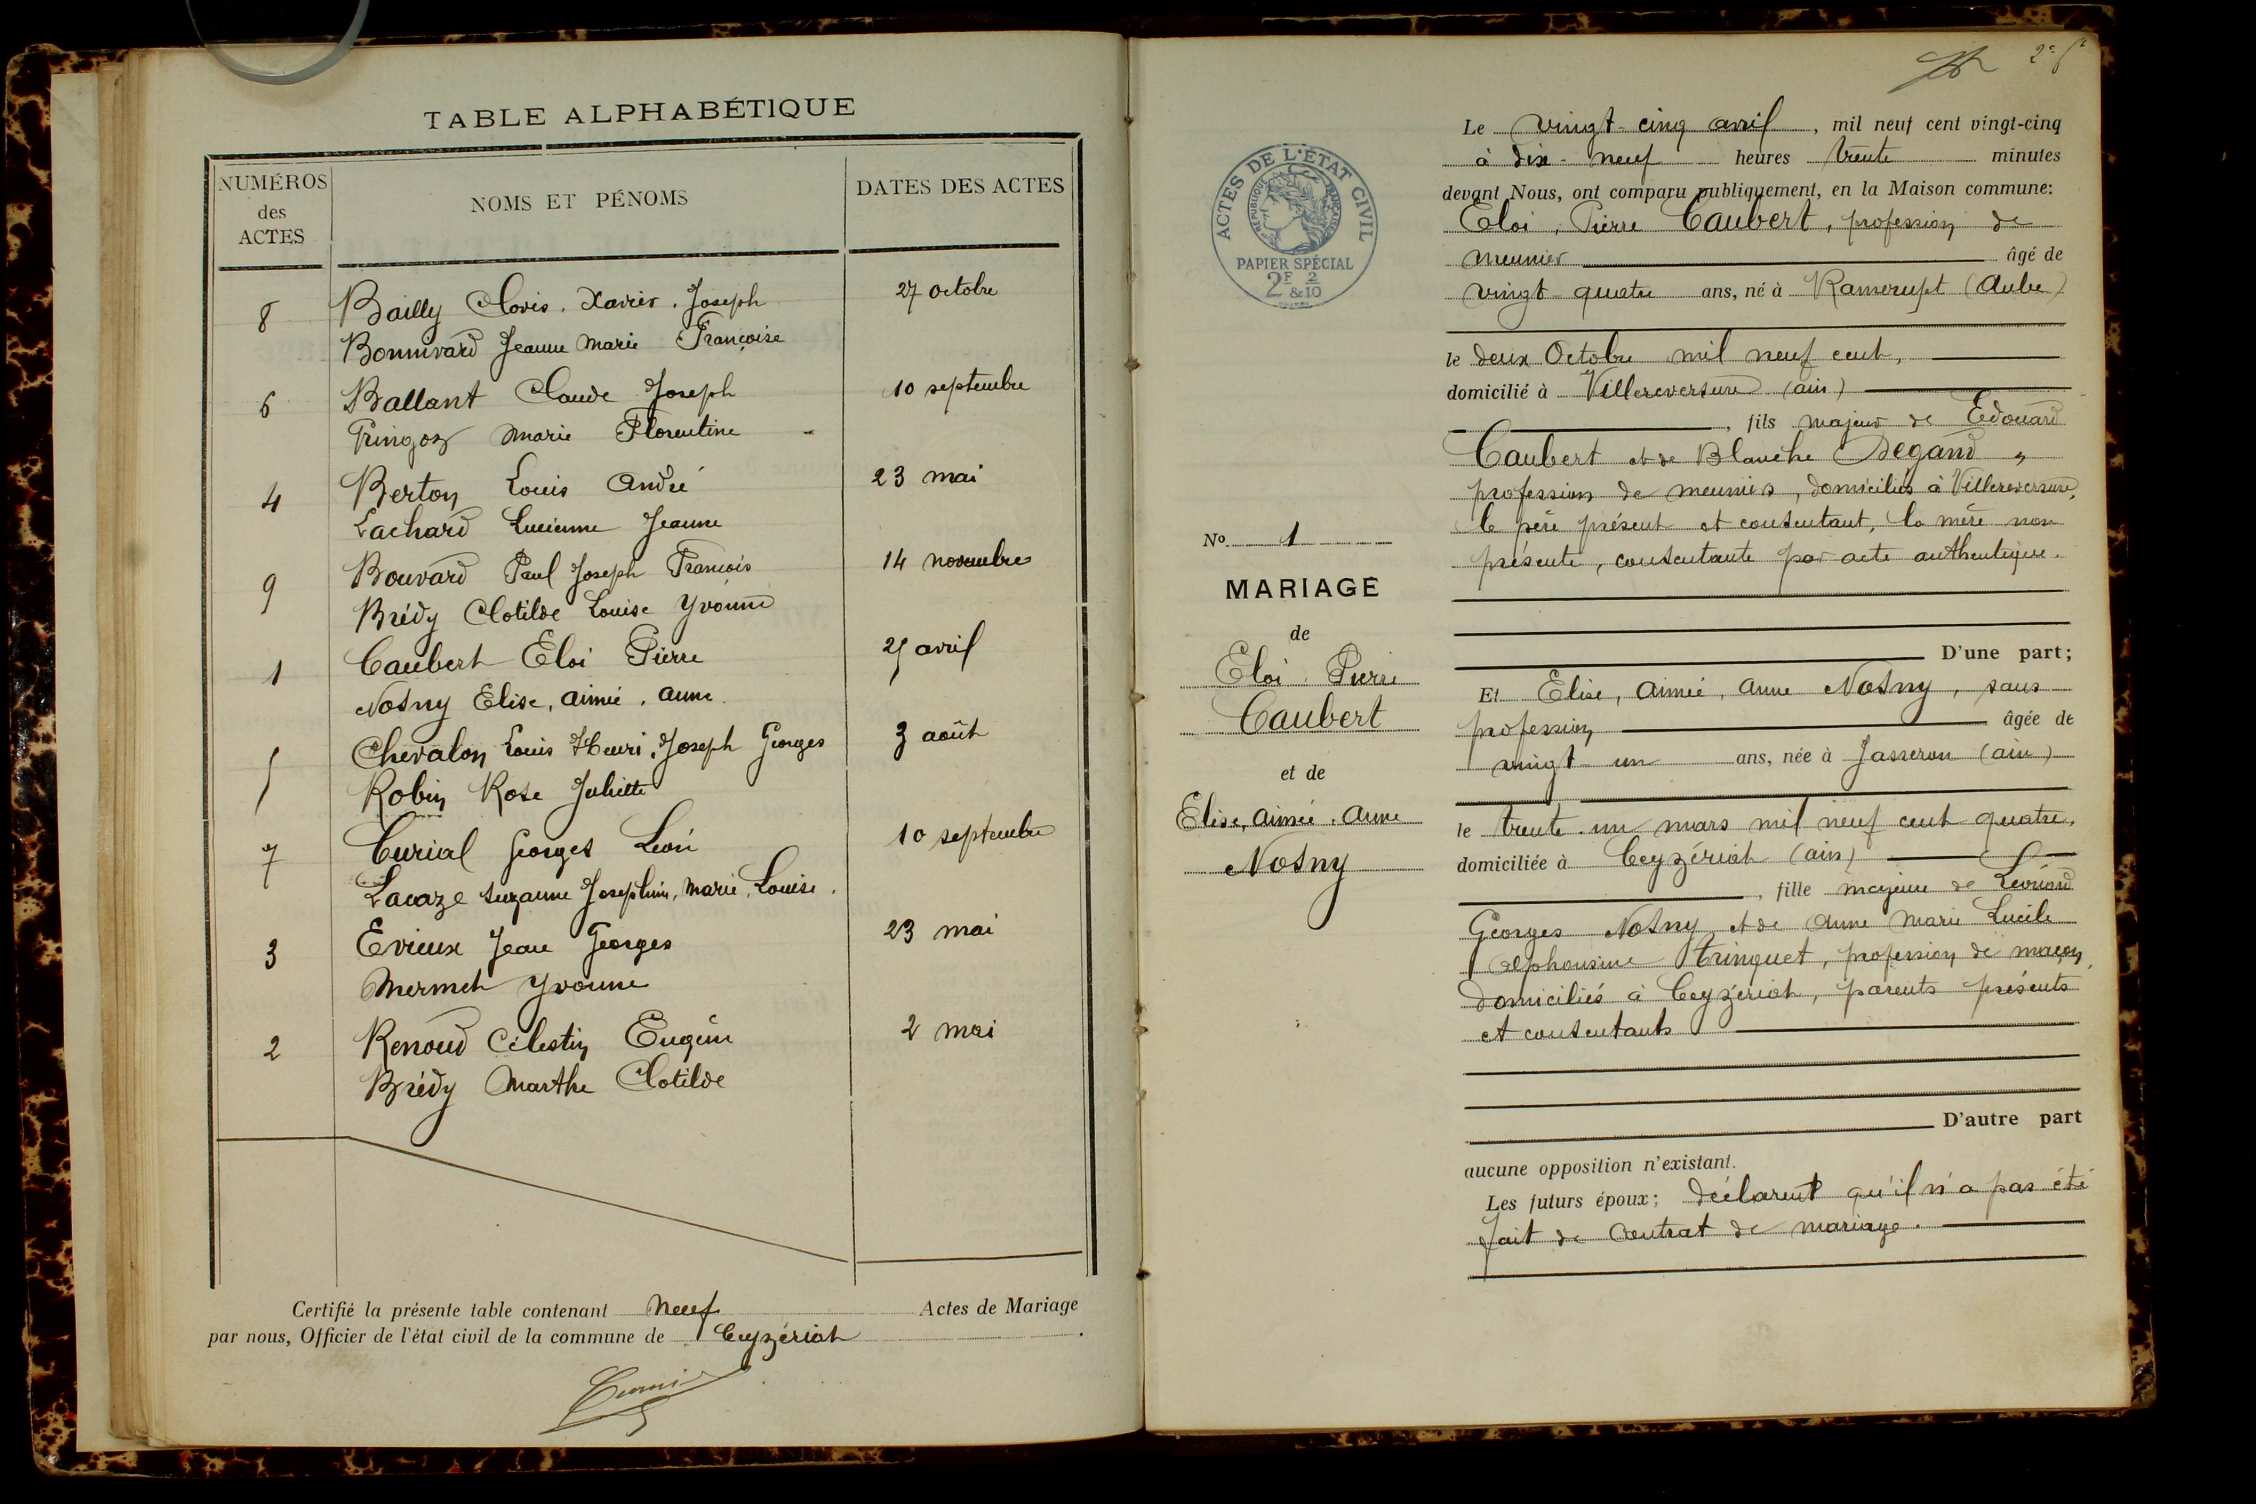 TABLE ALPHABÉTIQUE
NUMÉROS des ACTES
NOMS ET PÉNOMS
DATES DES ACTES
8 Bailly Clovis. Xavier. Joseph 27 octobre
Bonnivard Jeanne Marie Françoise
6 Ballant Claude Joseph 10 septembre
Gringoz Marie Florentine
4 Berton Louis André 23 mai
Lachard Lucienne Jeanne
9 Bouvard Paul Joseph François 14 novembre
Brédy Clotilde Louise Yvonne
1 Caubert Eloi Pierre 25 avril
Nosny Elise, aimée, anne
5 Chevalon Louis Henri, Joseph Georges 3 août
Robin Rose Juliette
7 Curial Georges Léon 10 septembre
Lacaze Suzanne Joséphine, Marie, Louise.
3 Evieux Jean Georges 23 mai
Mermet Yvonne
2 Renoud Célestin Eugène 2 mai
Brédy Marthe Clotilde
Certifié la présente table contenant Neuf Actes de Mariage
par nous, Officier de l'état civil de la commune de Ceyzériat.
2e ft
ACTES DE L'ÉTAT CIVIL
RÉPUBLIQUE FRANÇAISE
PAPIER SPÉCIAL
2F & 2/10
No 1
MARIAGE
de
Eloi Pierre
Caubert
et de
Elise, aimée, anne
Nosny
Le vingt-cinq avril, mil neuf cent vingt-cinq
à dix-neuf heures trente minutes
devant Nous, ont comparu publiquement, en la Maison commune:
Eloi, Pierre Caubert, profession de
meunier âgé de
vingt quatre ans, né à Ramerupt (Aube)
le deux Octobre mil neuf cent,
domicilié à Villereversure (ain)
, fils majeur de Edouard
Caubert et de Blanche Degand,
profession de meuniers, domiciliés à Villereversure,
le père présent et consentant, la mère non
présente, consentante par acte authentique.
D'une part;
Et Elise, aimée, anne Nosny, sans
profession âgée de
vingt un ans, née à Jasseron (ain)
le trente-un mars mil neuf cent quatre,
domiciliée à Ceyzériat (ain)
, fille majeure de Léonard
Georges Nosny et de anne Marie Lucile
alphonsine Trinquet, profession de maçon,
domiciliés à Ceyzériat, parents présents
et consentants
D'autre part
aucune opposition n'existant.
Les futurs époux; déclarent qu'il n'a pas été
fait de contrat de mariage.